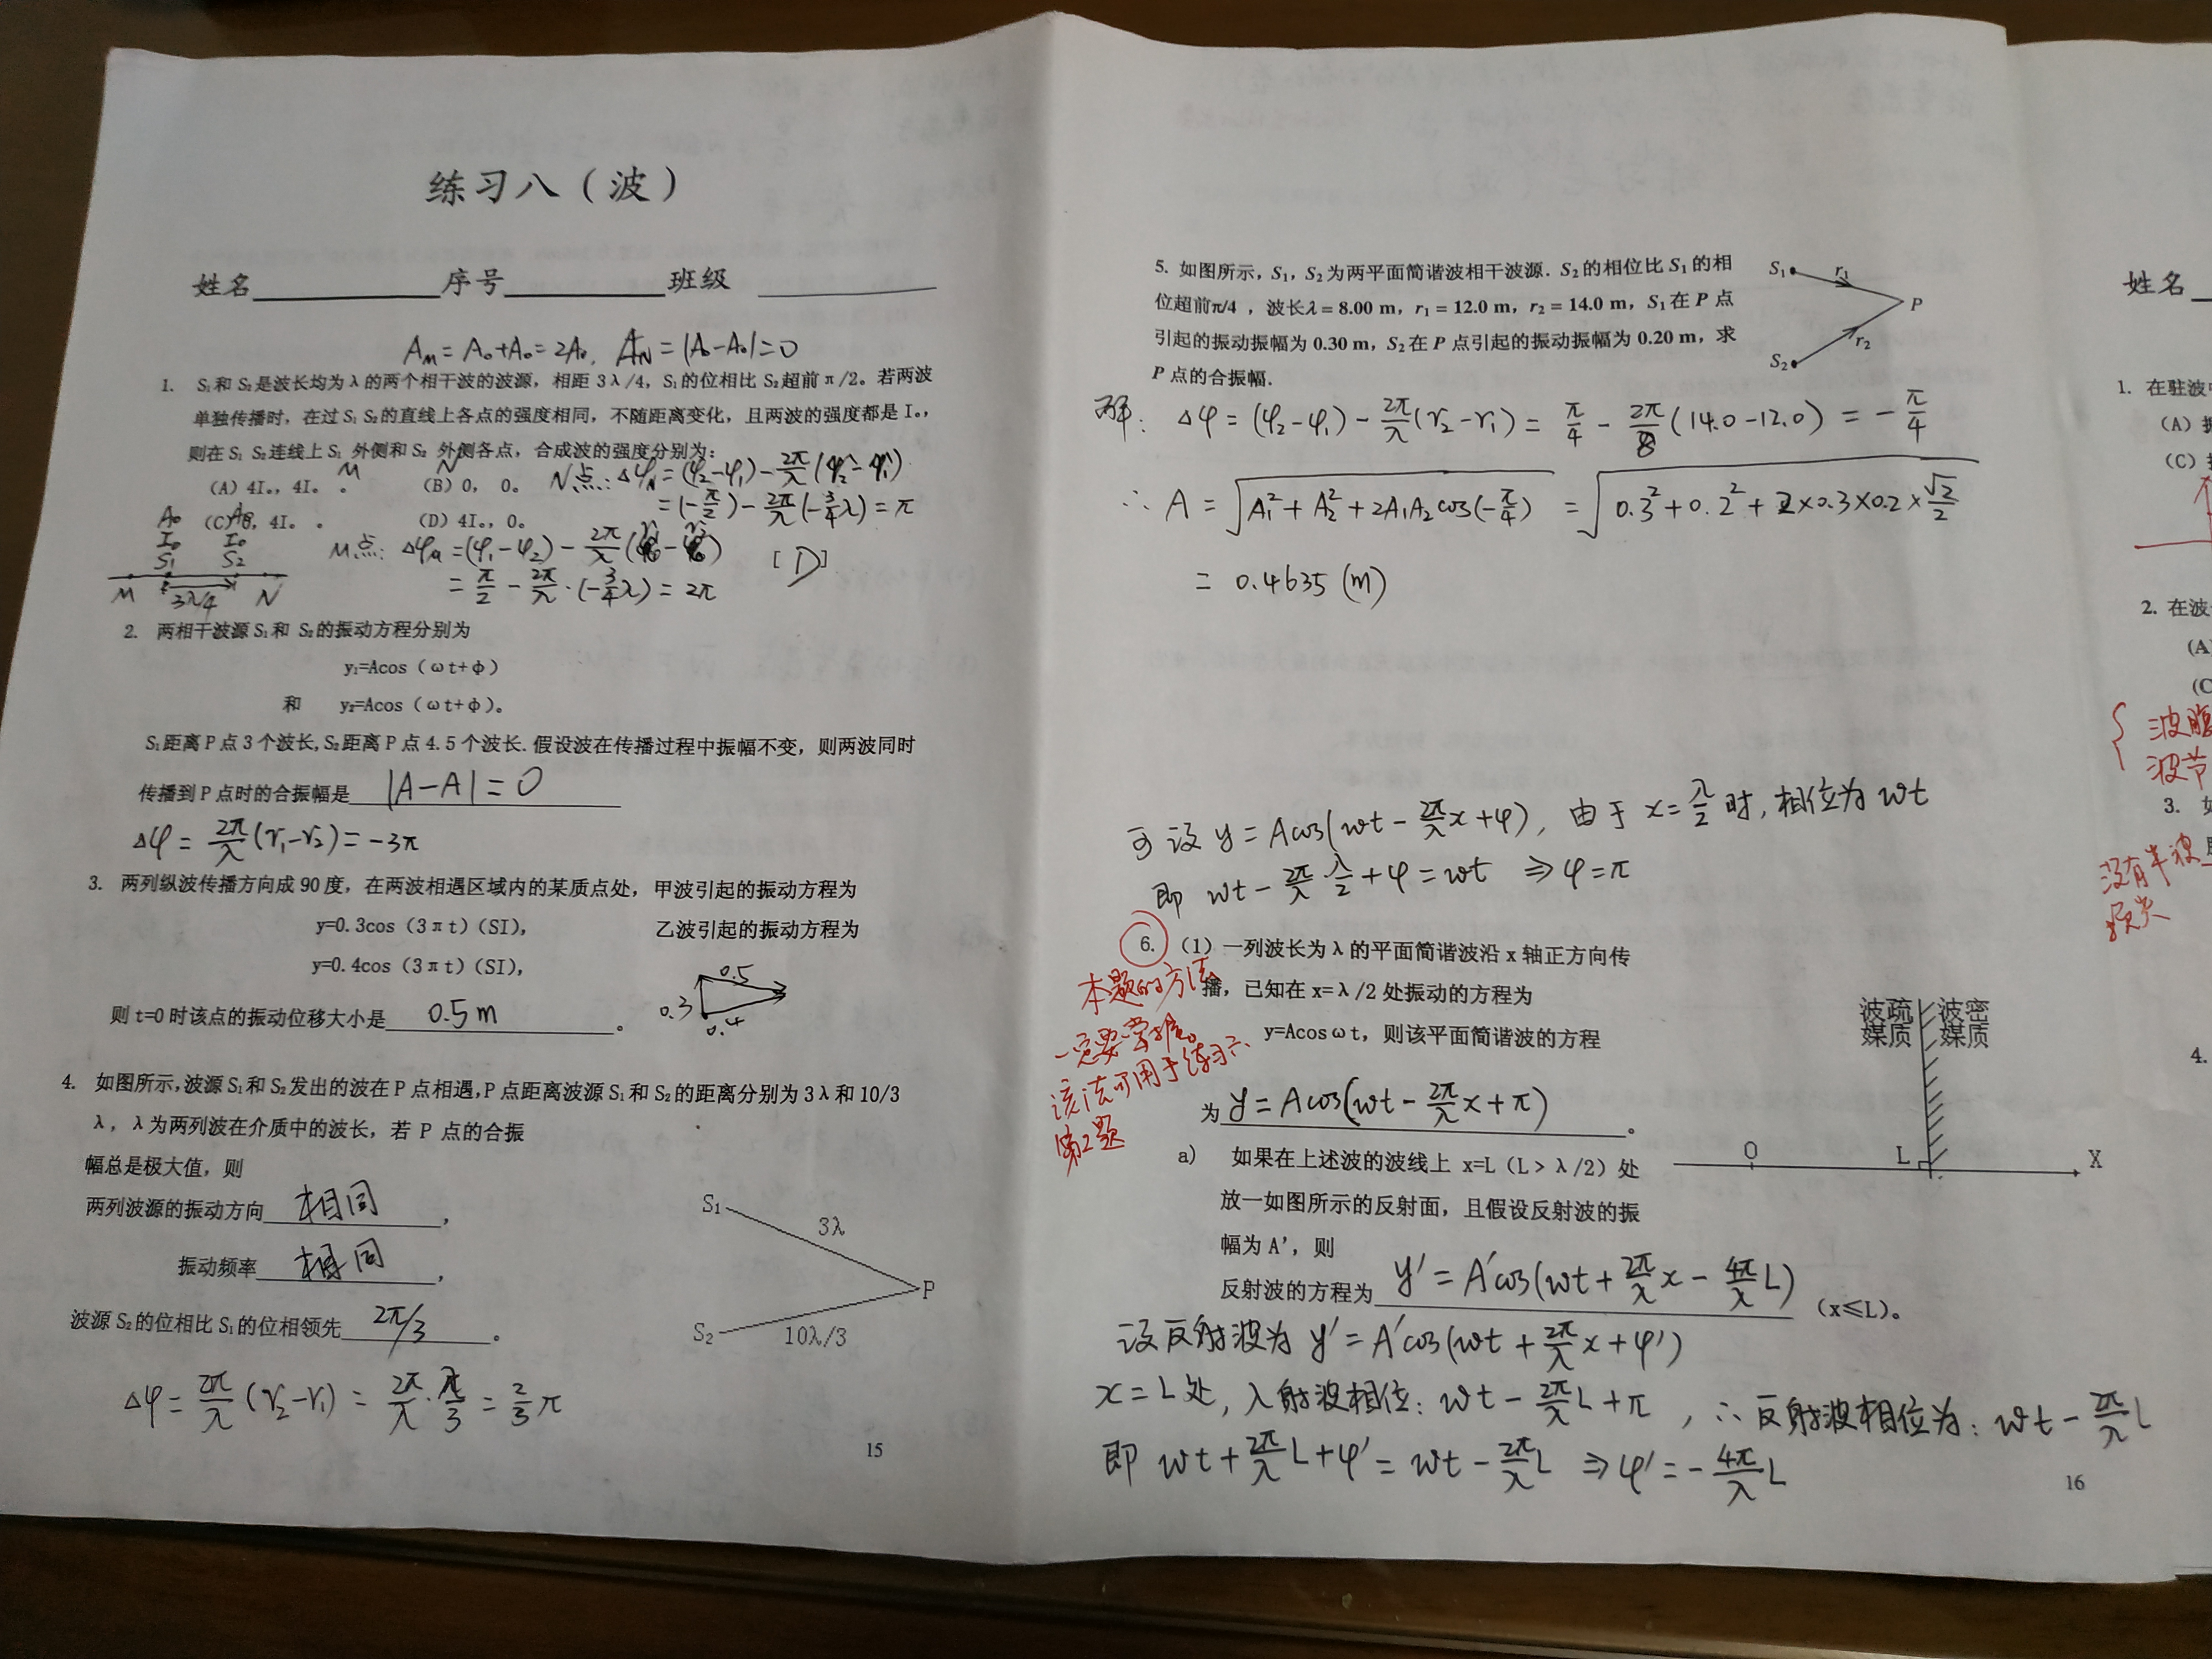 练习八（波）
姓名 序号 班级
A_M = A₀+A₀ = 2A₀, A_N = |A₀-A₀| = 0
1. S₁和 S₂是波长均为λ的两个相干波的波源，相距 3λ/4，S₁的位相比 S₂超前π/2。若两波
单独传播时，在过 S₁ S₂的直线上各点的强度相同，不随距离变化，且两波的强度都是 I₀，
则在 S₁ S₂连线上 S₁ 外侧和 S₂ 外侧各点，合成波的强度分别为：
M N
(A) 4I₀，4I₀ 。 (B) 0， 0。
N点: Δφ_N = (φ₂-φ₁) - 2π/λ
= (-π/2) - 2π/λ(-3/4 λ) = π
(C) 0，4I₀ 。 (D) 4I₀，0。
A₀ A₀
I₀ I₀
S₁ S₂
M 3λ/4 N
M点: Δφ_M = (φ₁-φ₂) - 2π/λ
= π/2 - 2π/λ·(-3/4 λ) = 2π
[D]
2. 两相干波源 S₁和 S₂的振动方程分别为
y₁=Acos（ωt+φ）
和 y₂=Acos（ωt+φ）。
S₁距离 P 点 3 个波长，S₂距离 P 点 4.5 个波长. 假设波在传播过程中振幅不变，则两波同时
传播到 P 点时的合振幅是 |A-A| = 0
Δφ = 2π/λ (r₁-r₂) = -3π
3. 两列纵波传播方向成 90 度，在两波相遇区域内的某质点处，甲波引起的振动方程为
y=0.3cos（3πt）（SI）， 乙波引起的振动方程为
y=0.4cos（3πt）（SI），
0.5
0.3
0.4
则 t=0 时该点的振动位移大小是 0.5m 。
4. 如图所示，波源 S₁和 S₂发出的波在 P 点相遇，P 点距离波源 S₁和 S₂的距离分别为 3λ和 10/3
λ，λ为两列波在介质中的波长，若 P 点的合振
幅总是极大值，则
两列波源的振动方向 相同 ，
振动频率 相同 ，
波源 S₂的位相比 S₁的位相领先 2π/3 。
S₁
3λ
P
S₂
10λ/3
Δφ = 2π/λ (r₂-r₁) = 2π/λ · λ/3 = 2/3 π
15
5. 如图所示，S₁，S₂为两平面简谐波相干波源. S₂的相位比 S₁的相
位超前π/4 ，波长λ= 8.00 m，r₁ = 12.0 m，r₂ = 14.0 m，S₁在 P 点
引起的振动振幅为 0.30 m，S₂在 P 点引起的振动振幅为 0.20 m，求
P 点的合振幅.
S₁ r₁
P
r₂
S₂
解: Δφ = (φ₂-φ₁) - 2π/λ (r₂-r₁) = π/4 - 2π/8 (14.0-12.0) = -π/4
∴ A = √(A₁²+A₂²+2A₁A₂cos(-π/4)) = √(0.3²+0.2²+2×0.3×0.2×√2/2)
= 0.4635 (m)
可设 y = Acos(ωt - 2π/λ x + φ), 由于 x = λ/2 时, 相位为 ωt
即 ωt - 2π/λ · λ/2 + φ = ωt ⇒ φ = π
6. （1）一列波长为λ的平面简谐波沿 x 轴正方向传
播，已知在 x=λ/2 处振动的方程为
y=Acosωt，则该平面简谐波的方程
为 y = Acos(ωt - 2π/λ x + π) 。
本题的方法
一定要掌握。
该法可用于练习六、
第2题
a) 如果在上述波的波线上 x=L（L＞λ/2）处
放一如图所示的反射面，且假设反射波的振
幅为 A'，则
反射波的方程为 y' = A'cos(ωt + 2π/λ x - 4π/λ L) （x≤L）。
波疏 波密
媒质 媒质
O L X
设反射波为 y' = A'cos(ωt + 2π/λ x + φ')
x = L 处, 入射波相位: ωt - 2π/λ L + π , ∴ 反射波相位为: ωt - 2π/λ L
即 ωt + 2π/λ L + φ' = ωt - 2π/λ L ⇒ φ' = -4π/λ L
16
姓名
1. 在驻波
(A)
(C)
2. 在波
(A
(C
波腹
波节
3.
没有半波
损失
4.